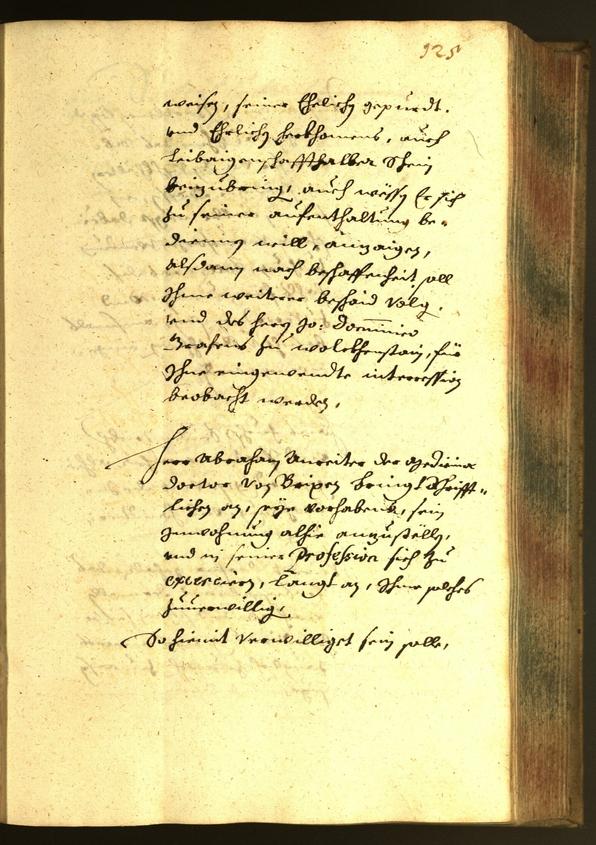 925
weisen, seiner Ehelichen gepurdt.
und Ehrlichen herkhomens, auch
Leibaigenschaffthalber Schein
beizubringen, auch wessen Er sich
zu seiner aufenthaltung be„
dienen will, anzaigen,
alsdann nach beschaffenheit soll
Ihme weiterer beschaid volgen.
und des herrn Jo: Dominico
Grafens zu wolckhenstain, für
Ihne eingewendte intercession
beobacht werden,
Herr Abraham Anreiter der Medicina
doctor von Brixen bringt Schrifft„
lichen an, seye vorhabens, sein
Inwohnung alhie anzustellen,
und in seiner Profession sich zu
exerciern, Langt an, Ihme solches
zuuerwilligen,
So hiemit verwilliget sein solle,